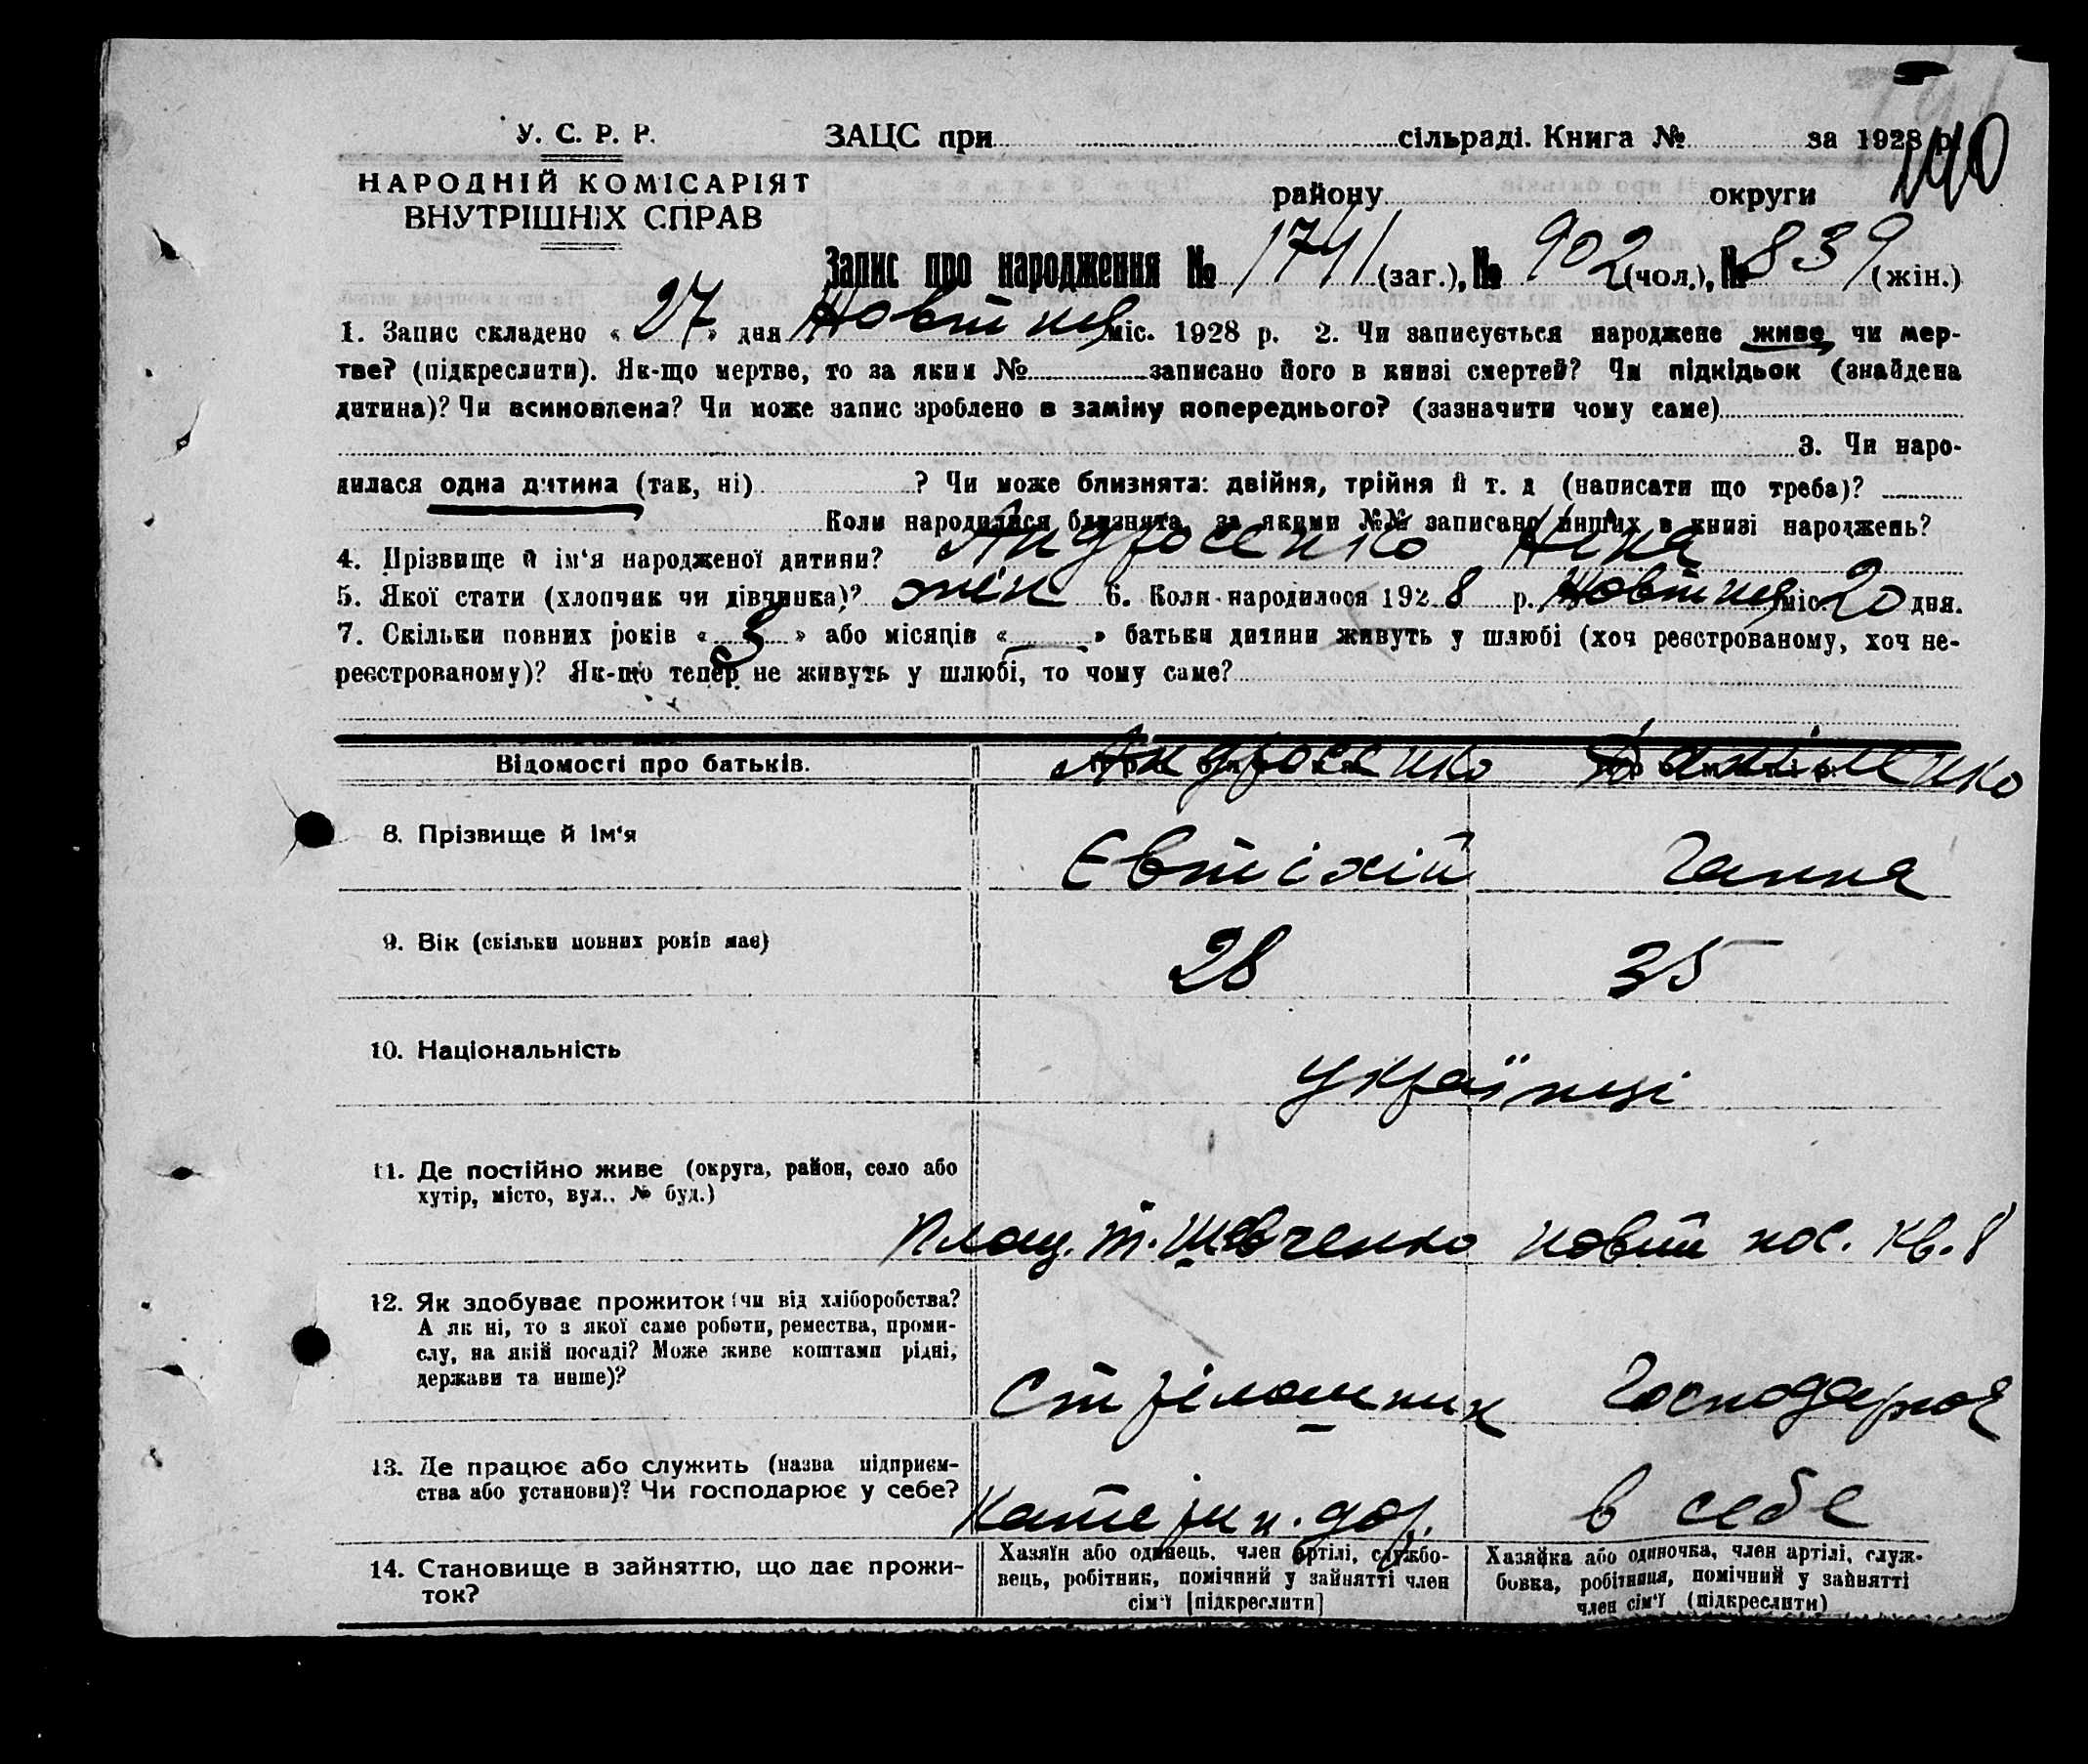 У. С. Р. Р.
НАРОДНІЙ КОМІСАРІЯТ
ВНУТРІШНІХ СПРАВ
ЗАЦС при сільраді. Книга № за 1928 р.
140
району округи
Запис про народження № 1741 (заг.), № 902 (чол.), № 839 (жін.)
1. Запис складено « 27 » дня Жовтня міс. 1928 р. 2. Чи записується народжене живе чи мер-
тве? (підкреслити). Як-що мертве, то за яким № записано його в книзі смертей? Чи підкідьок (знайдена
дитина)? Чи всиновлена? Чи може запис зроблено в заміну попереднього? (зазначити чому саме)
3. Чи наро-
дилася одна дитина (так, ні) ? Чи може близнята: двійня, трійня й т. д (написати що треба)?
Коли народилися близнята, за якими №№ записано инших в книзі народжень?
4. Прізвище й ім'я народженої дитини? Андросенко Ніна
5. Якої стати (хлопчик чи дівчинка)? жін 6. Коли народилося 1928 р. Жовтня міс. 20 дня.
7. Скільки повних років « 3 » або місяців « » батьки дитини живуть у шлюбі (хоч реєстрованому, хоч не-
реєстрованому)? Як-що тепер не живуть у шлюбі, то чому саме?
Відомості про батьків. Андросенко
8. Прізвище й ім'я Євтіхій Ганна
9. Вік (скільки повних років має) 28 35
10. Національність Українці
11. Де постійно живе (округа, район, село або
хутір, місто, вул.. № буд.)
Площ. т. Шевченко новий пос. кв. 8
12. Як здобуває прожиток (чи від хліборобства?
А як ні, то з якої саме роботи, ремества, проми-
слу, на якій посаді? Може живе коштами рідні,
держави та инше)?
Стрілошник Господарює
13. Де працює або служить (назва підприєм-
ства або установи)? Чи господарює у себе?
Катерин. дор. в себе
14. Становище в зайняттю, що дає прожи-
ток?
Хазяїн або одинець, член артілі, службо-
вець, робітник, помічний у зайнятті член
сім'ї [підкреслити]
Хазяйка або одиночка, член артілі, служ-
бовка, робітниця, помічний у зайнятті
член сім'ї (підкреслити)